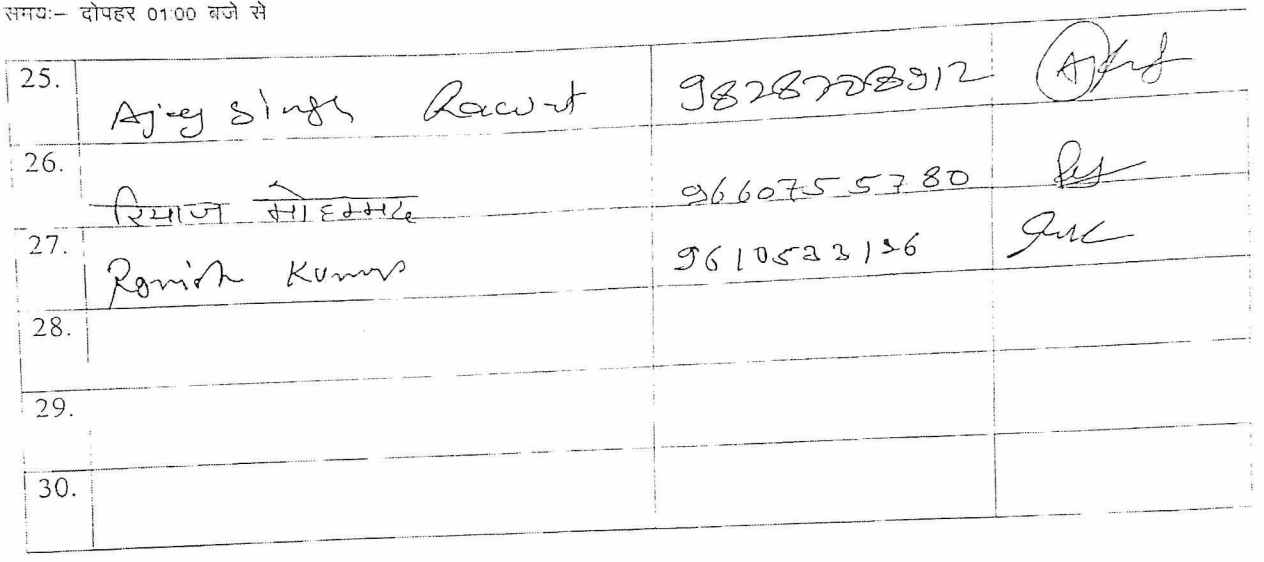 समयः– दोपहर 01:00 बजे से
25. Ajay Singh Rawat 9828728912
26. रियाज मोहम्मद 9660755780
27. Kumar
28.
29.
30.